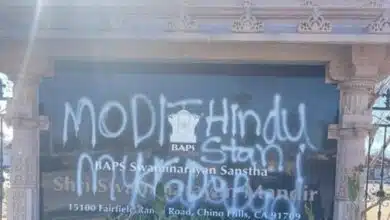 MODI Hindu
Stani
BAPS
BAPS Swaminarayan Sanstha
Shri Swaminarayan Mandir
15100 Fairfield Ranch Road, Chino Hills, CA 91709